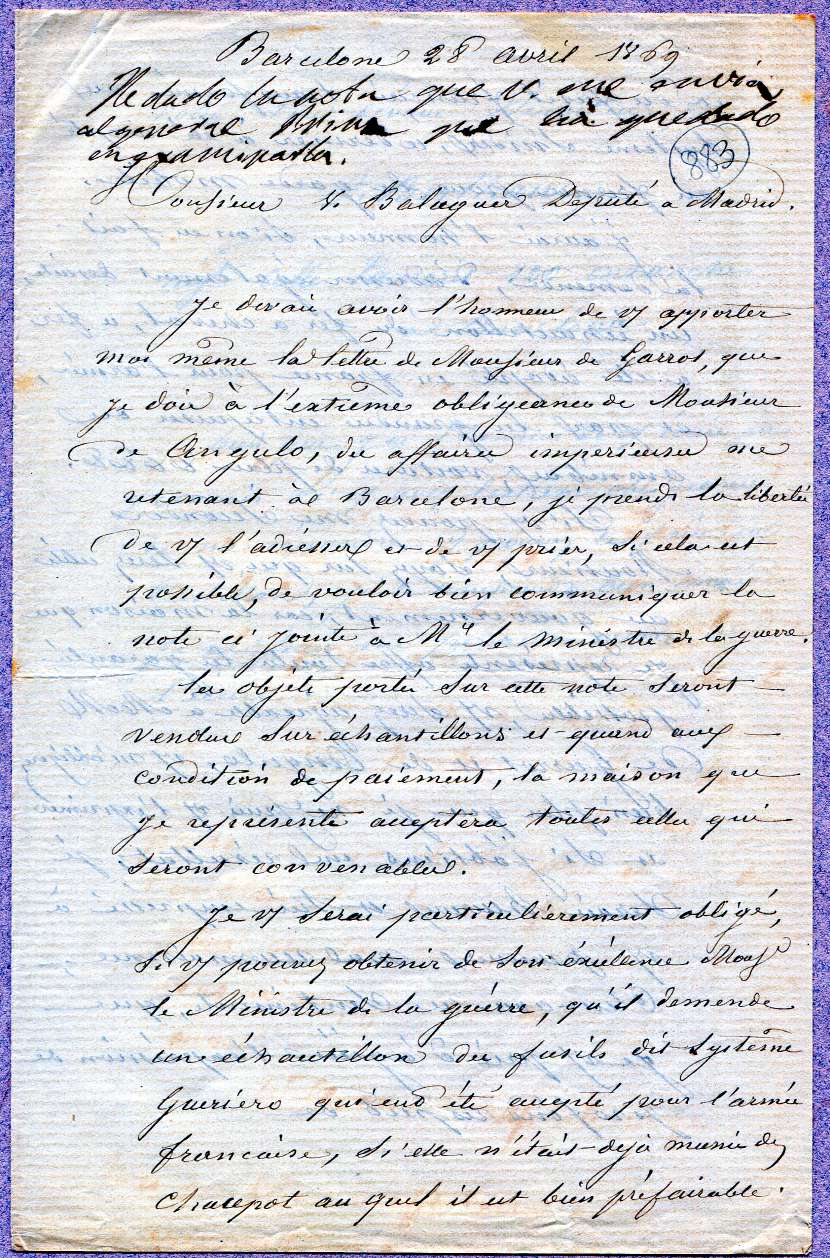 Barcelone 28 avril 1869
He dado la nota que V. me envia
al general Prim que ha quedado
en examinarla.
883
Monsieur V. Balaguer Deputé a Madrid.
Je devais avoir l'honneur de vs apporter
moi même la lettre de Monsieur de Garros, que
je dois à l'extrême obligeance de Monsieur
de Angulo, des affaires imperieuses me
retenant à Barcelone, je prends la liberté
de vs l'adresser et de vs prier, si cela est
possible, de vouloir bien communiquer la
note ci jointe à Mr le Ministre de la guerre.
les objets portés sur cette note seront
vendus sur échantillons et quand aux
condition de paiement, la maison que
je représente acceptera toutes celles qui
seront convenables.
Je vs serai particulièrement obligé,
si vs pouvez obtenir de son éxcélence Monsr
le Ministre de la guérre, qu'il demende
un échantillon des fusils dit système
Gueriéro qui eud été accepté pour l'armée
francaise, si elle n'était déjà munie des
chacepot au quel il est bien préfairable.